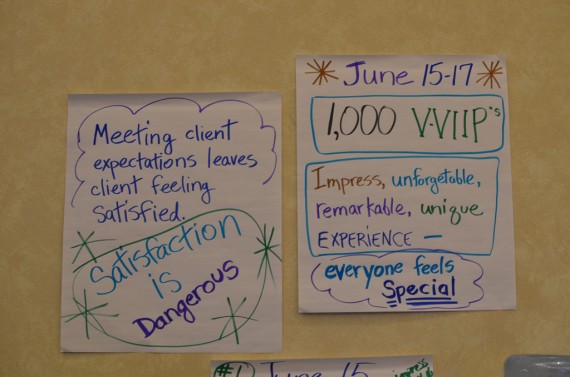 Meeting client
expectations leaves
client feeling
satisfied.
Satisfaction
is
Dangerous
June 15-17
1,000 V-VIIP's
Impress, unforgetable,
remarkable, unique
EXPERIENCE —
everyone feels
Special
#1) June 15
impress